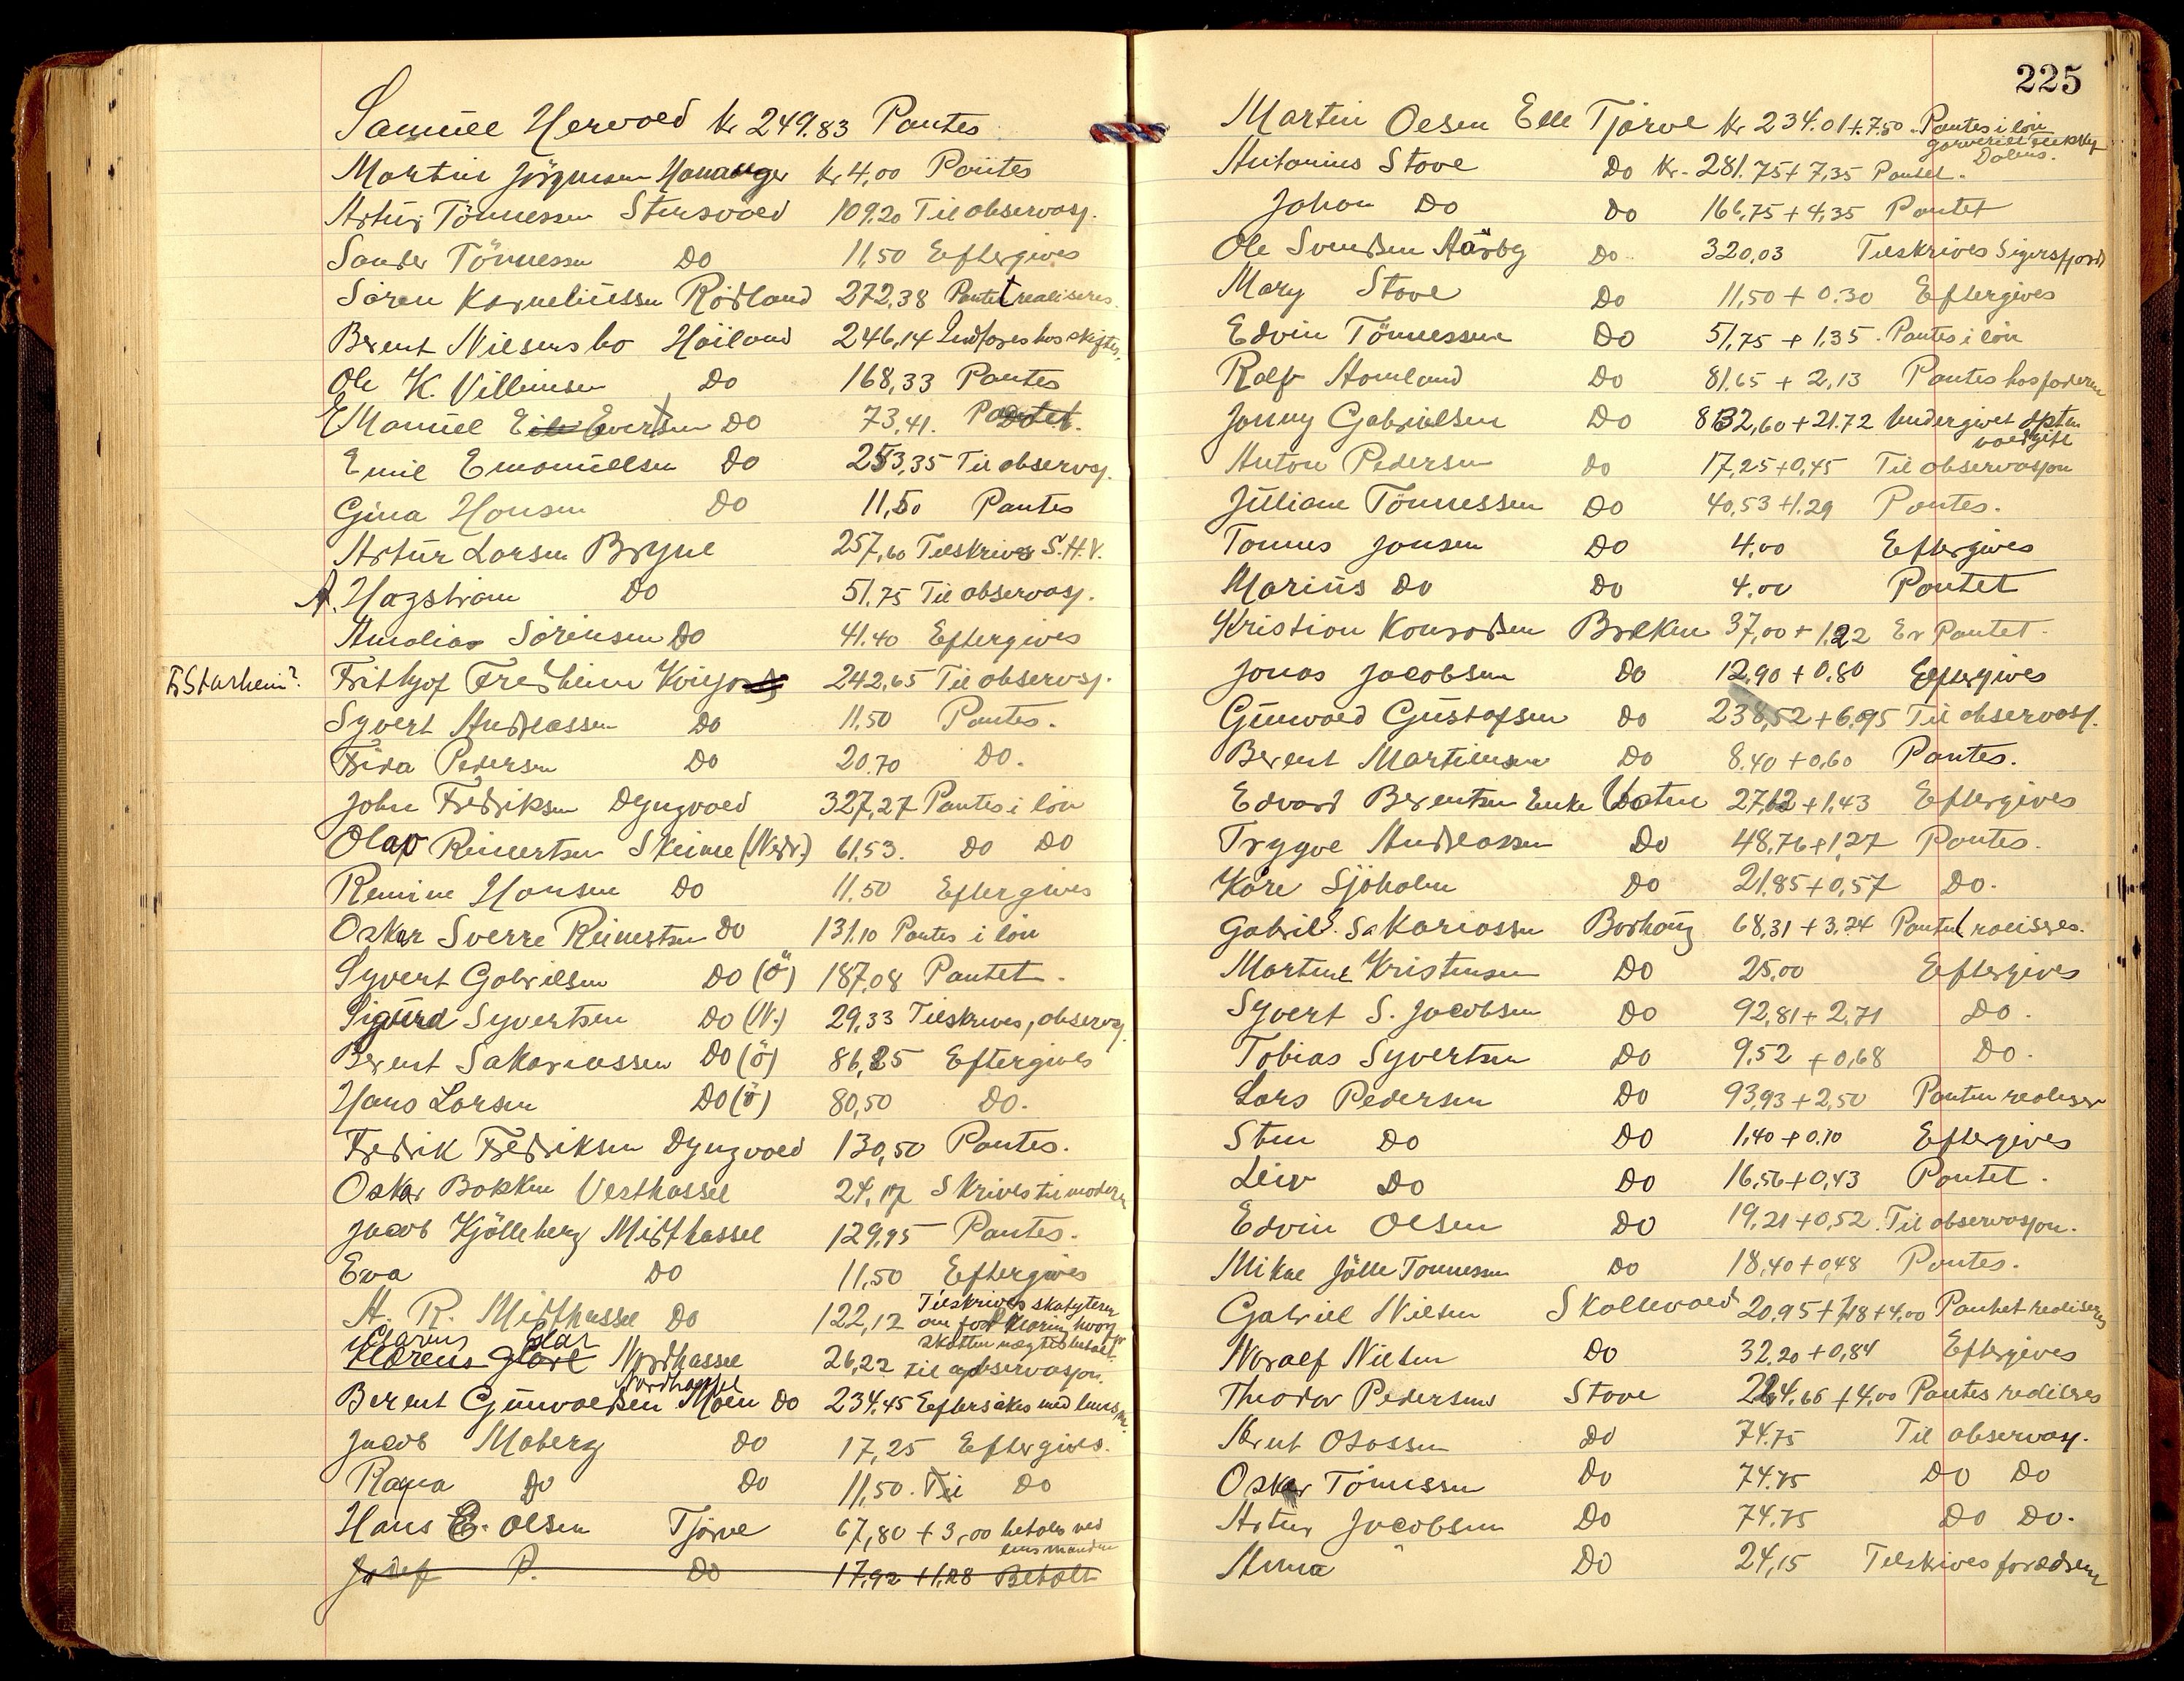 Samuel Hervold kr 249.83 Pantes
Martin Jörgensen Hananger kr 4,00 Pantes
Artur Tönnessen Stersvold 109,20 Til observasj.
Sander Tönnessen Do 11,50 Eftergives
Sören Kornelinssen Rödland 272,38 Pantet realiseres.
Berent Nielsens bo Höiland 246,14 Indfores hos skiftes.
Ole K. Villumsen Do 168,33 Pantes
EManuel Evertsen Do 73,41. Pantet.
Emil Emanuellsen Do 253,35 Til observasj.
Gina Hansen Do 11,50 Pantes
Artur Larsen Bryne 257,60 Tilskrives S.H.V.
A. Hagström Do 51,75 Til observasj.
Amalias Sörensen Do 41.40 Eftergives
F. Starheim? Frithjof Fredheim 242,65 Til observasj.
Syvert Andreassen Do 11,50 Pantes.
Frida Pedersen Do 20.70 Do.
John Fredriksen Dyngvold 327,27 Pantes i lön
Olav Reinertsen Skeime (Nedr.) 61,53. Do Do
Remine Hansen Do 11,50 Eftergives
Oskar Sverre Reinertsen Do 131,10 Pantes i lön
Syvert Gabrielsen Do (Ö) 187,08 Pantet.
Sigurd Syvertsen Do (N.) 29,33 Tilskrives, observasj.
Berent Sakariassen Do (ö) 86,25 Eftergives
Hans Larsen Do (ö) 80,50 Do.
Fredrik Fredriksen Dyngvold 130,50 Pantes.
Oskar Bakken Vesthassel 24,17 Skrives til moderen
Jacob Kjölleberg Midthassel 129,95 Pantes.
Eva Do 11,50 Eftergives
A. R. Midthassel Do 122,12 Tilskrives skatyteren om
skatten nægtes betalt.
Clarens Glar Nordhassel 26,22 til observasjon.
Nordhassel
Berent Gunvaldsen Moen Do 234.45 Eftersökes med lensm.
Jacob Moberg Do 17,25 Eftergives.
Ragna Do Do 11,50. Til Do
Hans E. Olsen Tjörve 67,80 + 3,00 betales ved
lensmanden
Josef P. Do 17,92 + 1,28 Betalt
225
Martin Olsen Elle Tjörve kr 234.01 + 7.50. Pantes i lön
Dalens.
Antonius Stove Do kr. 281.75 + 7,35 Pantet.
Johan Do Do 166,75 + 4,35 Pantet
Ole Svendsen Aarby Do 320,03 Tilskrives Sigersfjord
Mary Stove Do 11,50 + 0.30 Eftergives
Edvin Tönnessen Do 51,75 + 1,35. Pantes i lön
Ralf Homland Do 81,65 + 2,13 Pantes hos faderen
Jonny Gabrielsen Do 832,60 + 21.72 Undergivet
Anton Pedersen Do 17,25 + 0,45 Til observasjon
Juliane Tönnessen Do 40,53 + 1.29 Pantes.
Tönnes Jonsen Do 4,00 Eftergives
Marius Do Do 4,00 Pantet
Kristian Konradsen Brekne 37,00 + 1,22 Er Pantet.
Jonas Jacobsen Do 12,90 + 0,80 Eftergives
Gunvald Gustafsen Do 238,52 + 6,95 Til observasj.
Berent Martinsen Do 8.40 + 0,60 Pantes.
Edvard Berentsen Enke Vatne 27,12 + 1,43 Eftergives
Trygve Andreassen Do 48,76 + 1,27 Pantes.
Kåre Sjöholm Do 21,85 + 0,57 Do.
Gabriel S. Sakariassen Borhaug 68,31 + 3,24 Pantet realiseres.
Martine Kristensen Do 25,00 Eftergives
Syvert S. Jacobsen Do 92,81 + 2,71 Do.
Tobias Syvertsen Do 9,52 + 0,68 Do.
Lars Pedersen Do 93,93 + 2,50 Panten realiseres
Sten Do Do 1,40 + 0.10 Eftergives
Leiv Do Do 16,56 + 0,43 Pantet.
Edvin Olsen Do 19,21 + 0,52. Til observasjon.
Mikal Jölle Tönnessen Do 18,40 + 0,48 Pantes.
Gabriel Nilsen Skollevold 20,95 + 1,18 + 4,00 Pantet realiseres
Noralf Nilsen Do 32,20 + 0,84 Eftergives
Theodor Pedersens Stove 224,66 + 4.00 Pantes realiseres
Berent Osassen Do 74.75 Til observasj.
Oskar Tönnessen Do 74.75 Do Do
Artur Jacobsen Do 74.75 Do Do.
Anna " Do 24,15 Tilskrives forældrene